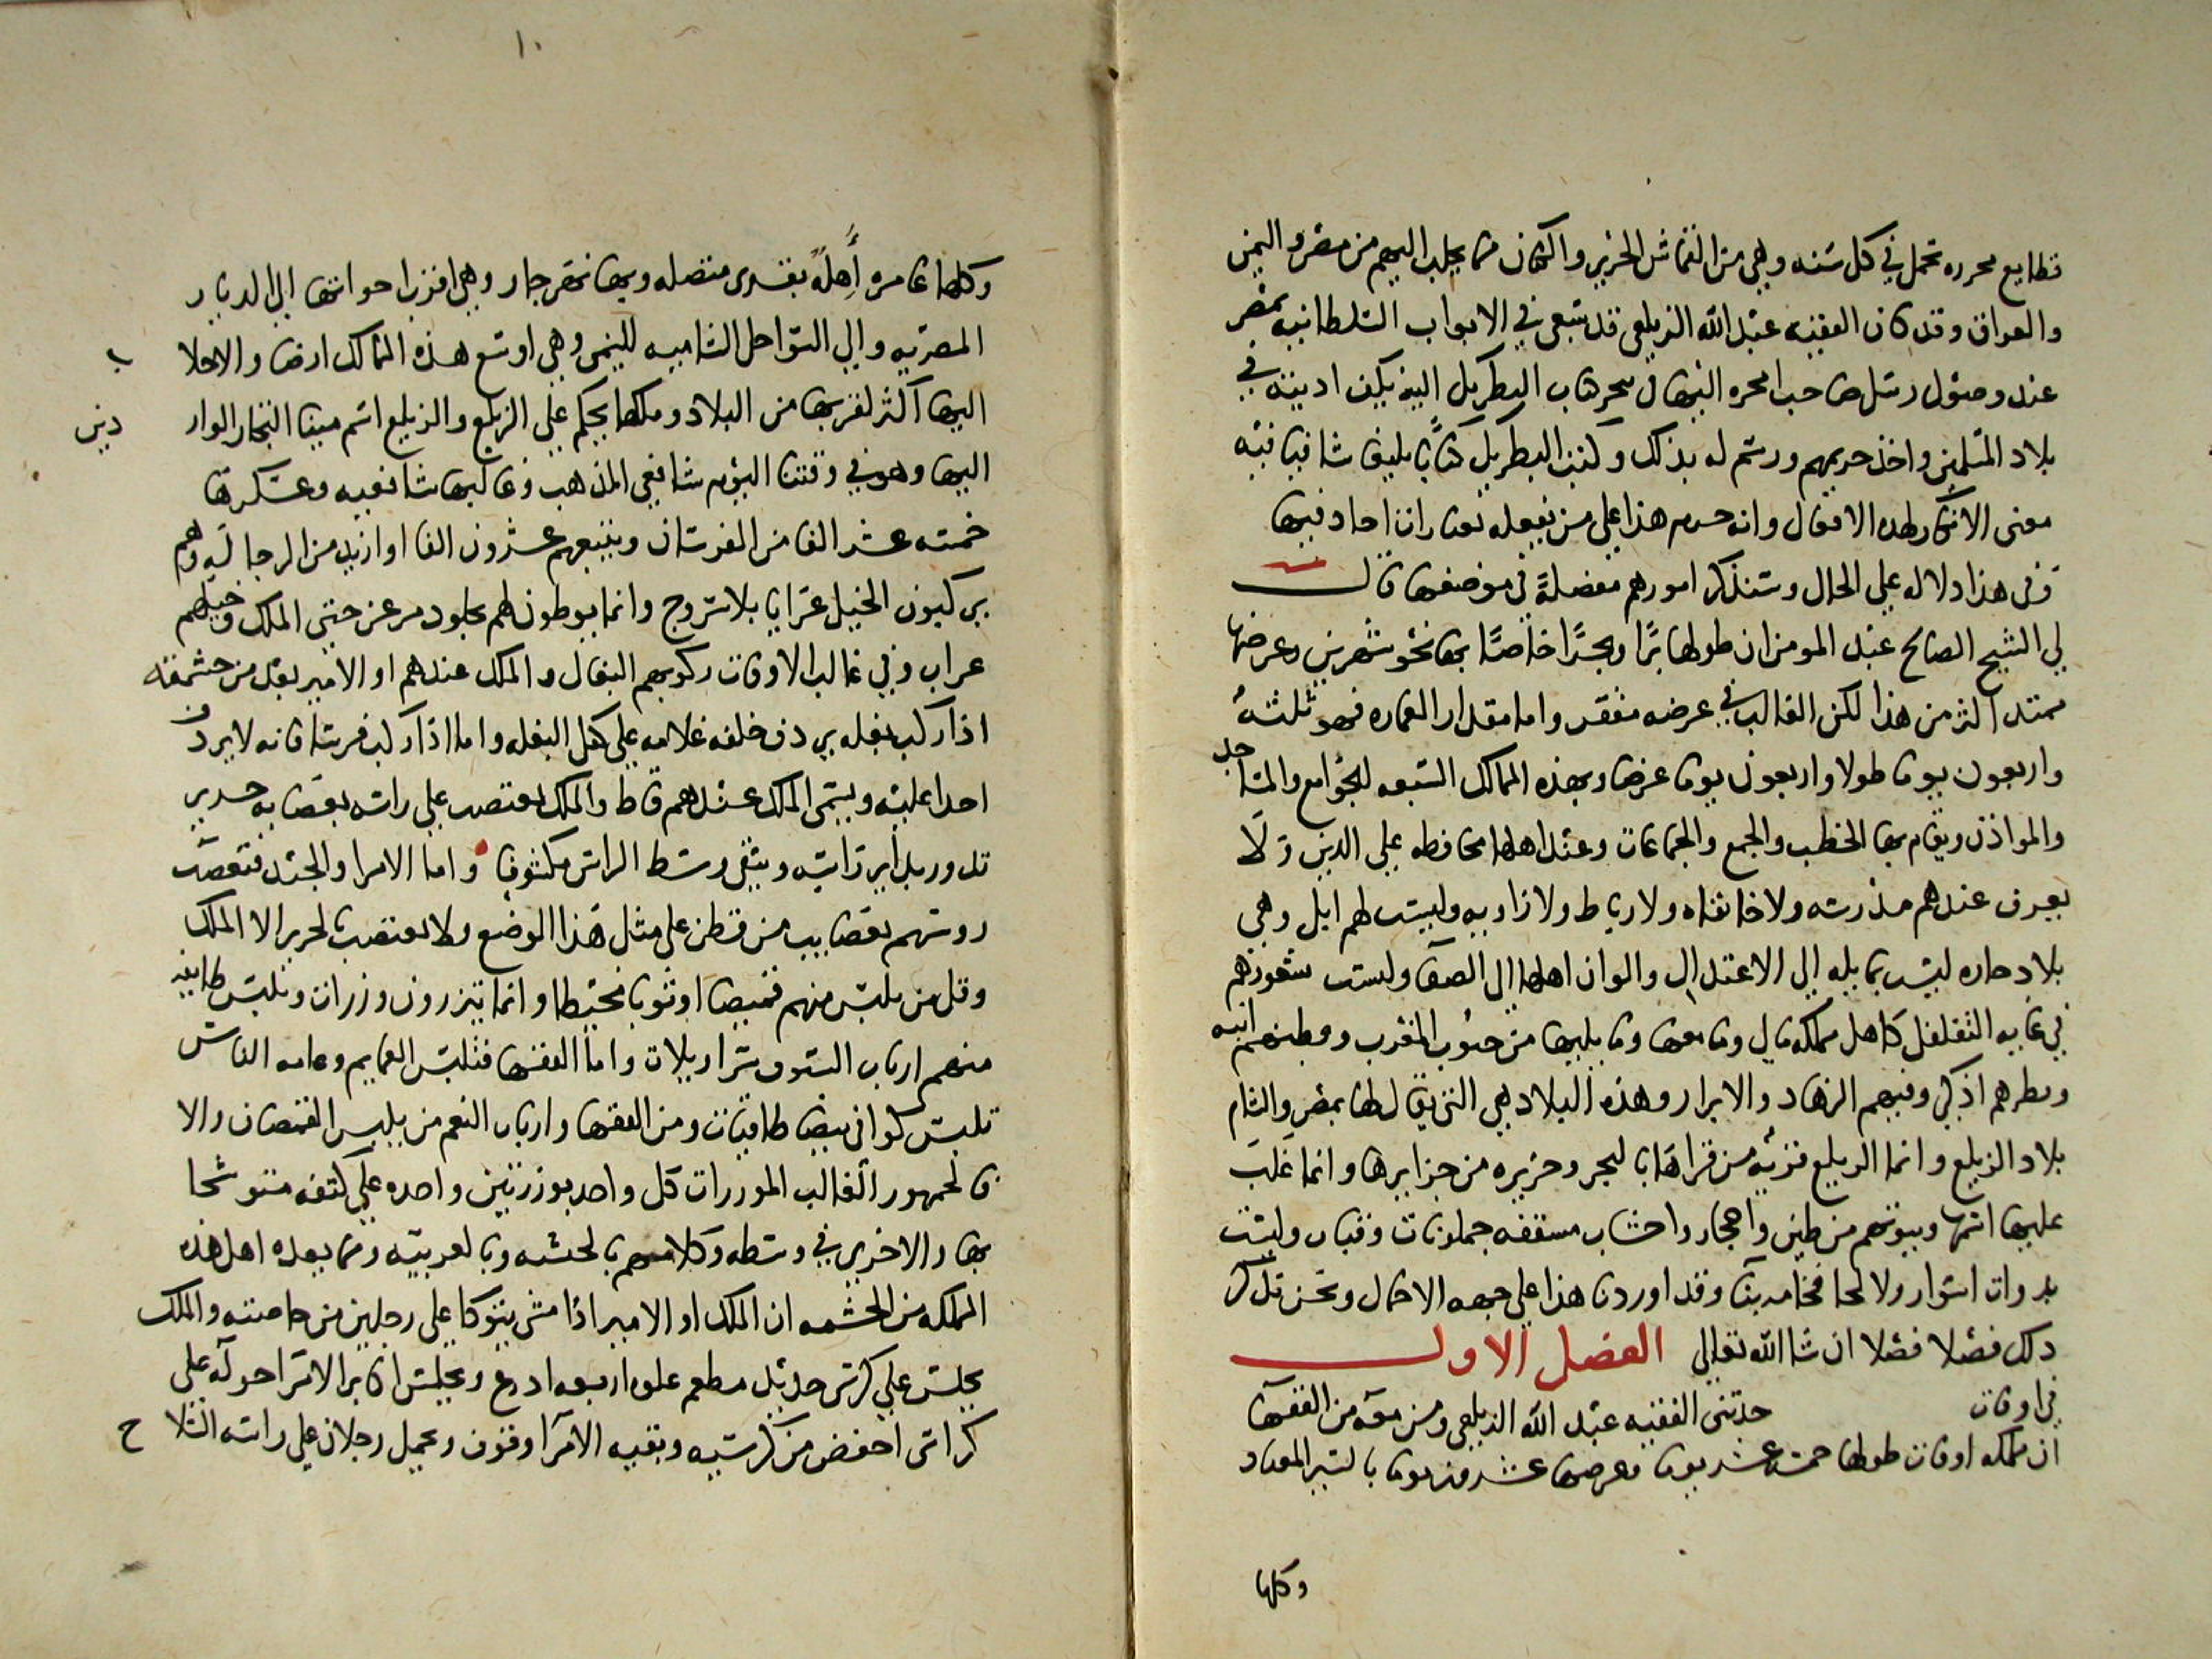 قطايع محرره تحمل في كل سنه وهي من القماش الحرير والكتان مما يجلب اليهم من مصر واليمن
والعراق وقد كان الفقيه عبد الله الزيلعي قد سعى في الابواب السلطانيه بمصر
عند وصول رسل صاحب امحره اليها في تنجز كتاب البطريك اليه بكف اذيته في
بلاد المسلمين واخذ حريمهم ورسم له بذلك وكتب البطريك كتابا بليغا شافيا فيه
معنى الانكار لهذه الافعال وانه حرم هذا على من يفعله بعبارات اجاد فيها
وفي هذا دلاله على الحال وسنذكر امورهم مفصلة في موضعها قال
لي الشيخ الصالح عبد المومن ان طولها برا وبحرا خاصا بها نحو شهرين وعرضها
ممتد اكثر من هذا لكن الغالب في عرضه مقفر واما مقدار العماره فهو ثلثة
واربعون يوما طولا واربعون يوما عرضا وبهذه الممالك السبعه الجوامع والمساجد
والمواذن ويقام بها الخطب والجمع والجماعات وعند اهلها محافظه على الدين ولا
يعرف عندهم مدرسه ولا خانقاه ولا رباط ولا زاويه وليست لهم ابل وهي
بلاد حاره ليست بمايله الى الاعتدال والوان اهلها الى الصفا وليست شعورهم
في غايه التفلفل كاهل مملكه مالي وما معها وما يليها من جنوب المغرب وفطنهم انبه
وفطرهم اذكى وفيهم الزهاد والابرار وهذه البلاد هي التي يقال لها بمصر والشام
بلاد الزيلع وانما الزيلع قريه من قراها بالبحر وجزيره من جزايرها وانما غلب
عليها اسمها وبيوتهم من طين واحجار واخشاب مسقفه جملونات وقباب وليست
بذوات اسوار ولا لها فخامه بنا وقد اوردنا هذا على جهه الاجمال ونحن نذكر
ذلك فصلا فصلا ان شا الله تعالى الفصل الاول
في اوفات حدثني الفقيه عبد الله الزيلعي ومن معه من الفقها
ان مملكه اوفات طولها خمسه عشر يوما وعرضها عشرون يوما بالسير المعتاد
وكلها
١٠
وكلها عامره أهلة بقرى متصله وبها نهر جار وهي اقرب اخواتها الى الديار
المصريه والى السواحل الشاميه لليمن وهي اوسع هذه الممالك ارضا والاجلا ب
اليها اكثر لقربها من البلاد وملكها يحكم على الزيلع والزيلع اسم مينا التجار الوار دين
اليها وهو في وقتنا اليوم شافعي المذهب وغالبها شافعيه وعسكرها
خمسه عشر الفا من الفرسان ويتبعهم عشرون الفا او ازيد من الرجاله وهم
يركبون الخيل عرايا بلا سروج وانما يوطون لهم بجلود مرعز حتى الملك وخيلهم
عراب وفي غالب الاوقات ركوبهم البغال والملك عندهم او الامير يعد من حشمته
اذا ركب بغله يردف خلفه غلامه على كفل البغله واما اذا ركب فرسا فانه لا يردف
احدا عليه ويسمى الملك عندهم قاط والملك يعتصب على راسه بعصابه حرير
تدور بداير راسه ويبقى وسط الراس مكشوفا واما الامرا والجند فتعصب
روسهم بعصايب من قطن على مثل هذا الوضع ولا يعتصب لحرير الا الملك
وقل من يلبس منهم قميصا او ثوبا مخيطا وانما يتزرون وزرات وتلبس طايفه
منهم ارباب السيوف سراويلات واما الفقها فتلبس العمايم وعامه الناس
تلبس كوافي بيضا طاقيات ومن الفقها وارباب النعم من يلبس القمصان والا
فالجمهور الغالب الموزرات كل واحد بوزرتين واحده على كتفه متوشحا
بها والاخرى في وسطه وكلامهم بالحبشيه وبالعربيه ومما يعده اهل هذه
المملكه من الحشمه ان الملك او الامير اذا مشى يتوكا على رجلين من خاصته والملك
يجلس على كرسي حديد مطعم علوه اربعه اذرع ويجلس اكابر الامرا حوله على
كراسي اخفض من كرسيه وبقيه الامرا وقوف ويحمل رجلان على راسه السلا ح